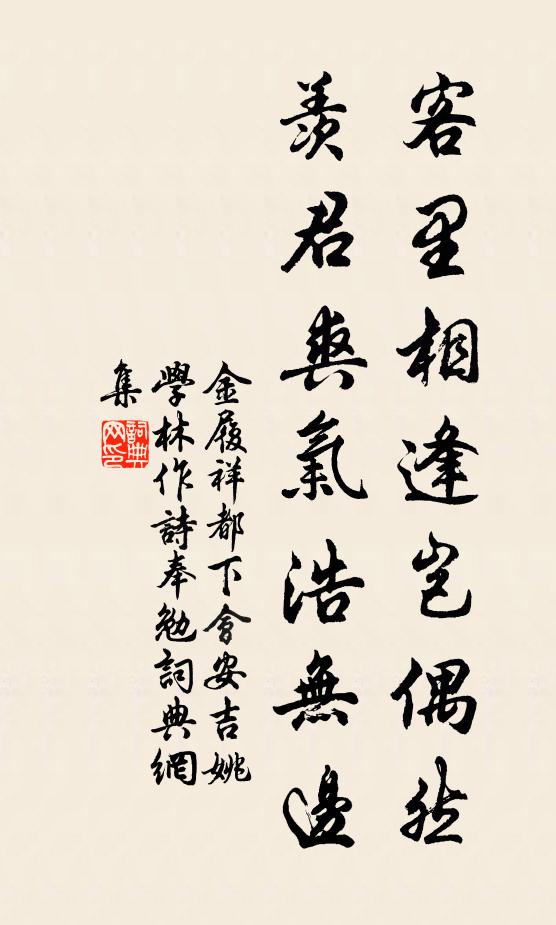 客里相逢岂偶然
羨君爽氣浩無邊
金履祥都下會安吉姚
學林作詩奉勉詞典網
集
詞典
网印